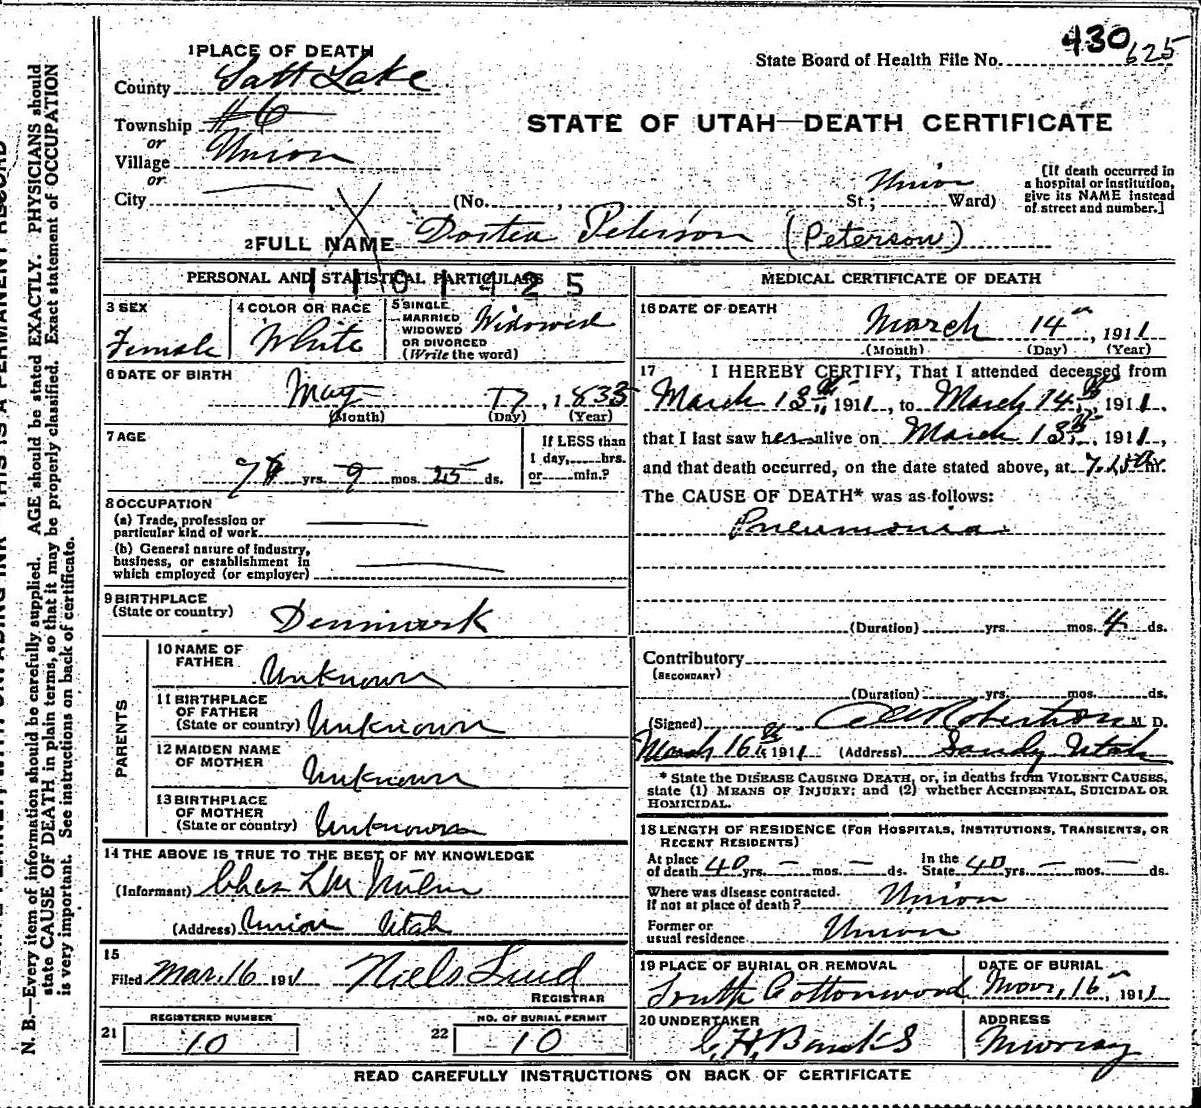 430 625
State Board of Health File No.
1 PLACE OF DEATH
County Salt Lake
Township #6
or
Village Union
or
City
STATE OF UTAH—DEATH CERTIFICATE
(No. , St.; Union Ward)
[If death occurred in
a hospital or institution,
give its NAME instead
of street and number.]
2 FULL NAME Dortea Peterson (Peterson)
PERSONAL AND STATISTICAL PARTICULARS
1101 25
3 SEX
Female
4 COLOR OR RACE
White
5 SINGLE
MARRIED
WIDOWED
OR DIVORCED
(Write the word)
Widowed
6 DATE OF BIRTH
May 17, 1833
(Month) (Day) (Year)
7 AGE
yrs. 9 mos. 25 ds.
If LESS than
1 day, hrs.
or min.?
8 OCCUPATION
(a) Trade, profession or
particular kind of work
(b) General nature of industry,
business, or establishment in
which employed (or employer)
9 BIRTHPLACE
(State or country)
Denmark
PARENTS
10 NAME OF
FATHER
Unknown
11 BIRTHPLACE
OF FATHER
(State or country) Unknown
12 MAIDEN NAME
OF MOTHER
Unknown
13 BIRTHPLACE
OF MOTHER
(State or country) Unknown
14 THE ABOVE IS TRUE TO THE BEST OF MY KNOWLEDGE
(Informant) Chas
(Address) Union Utah
15
Filed Mar. 16 1911 Niels Lind
REGISTRAR
21 REGISTERED NUMBER
10
22 NO. OF BURIAL PERMIT
10
MEDICAL CERTIFICATE OF DEATH
16 DATE OF DEATH
March 14th, 1911
(Month) (Day) (Year)
17 I HEREBY CERTIFY, That I attended deceased from
March 13th, 1911, to March 14th, 1911,
that I last saw her alive on March 13th, 1911,
and that death occurred, on the date stated above, at hr.
The CAUSE OF DEATH* was as follows:
Pneumonia
(Duration) yrs. mos. 4 ds.
Contributory
(SECONDARY)
(Duration) yrs. mos. ds.
(Signed) Robertson M. D.
March 16th, 1911 (Address) Sandy Utah
* State the DISEASE CAUSING DEATH, or, in deaths from VIOLENT CAUSES,
state (1) MEANS OF INJURY; and (2) whether ACCIDENTAL, SUICIDAL OR
HOMICIDAL.
18 LENGTH OF RESIDENCE (FOR HOSPITALS, INSTITUTIONS, TRANSIENTS, OR
RECENT RESIDENTS)
At place
of death 40 yrs. – mos. – ds.
In the
State 40 yrs. – mos. – ds.
Where was disease contracted.
If not at place of death? Union
Former or
usual residence Union
19 PLACE OF BURIAL OR REMOVAL
South Cottonwood
DATE OF BURIAL
Mar, 16th, 1911
20 UNDERTAKER
Banks
ADDRESS
Murray
READ CAREFULLY INSTRUCTIONS ON BACK OF CERTIFICATE
N. B.—Every item of information should be carefully supplied. AGE should be stated EXACTLY. PHYSICIANS should
state CAUSE OF DEATH in plain terms, so that it may be properly classified. Exact statement of OCCUPATION
is very important. See instructions on back of certificate.